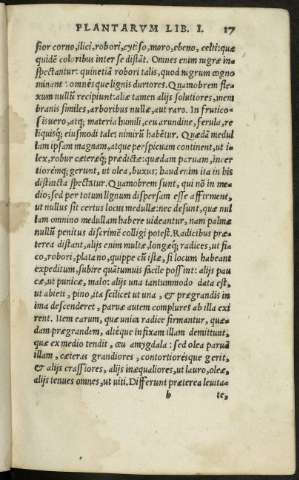 PLANTARVM LIB. I. 17
sior corno, ilici, robori, cytiso, moro, ebeno, celti: quæ
quidē coloribus inter se distāt. Omnes enim nigræ in
spectantur. quinetiā robori talis, quod nigrum cogno
minant: omnésque lignis durtores. Quamobrem fle-
xum nullū recipiunt: aliæ tamen alijs solutiores, mem
branis similes, arboribus nullæ, aut raro. In frutico-
sis uero, atq; materia humili, ceu arundine, ferula, re
liquisq; eiusmodi tales nimirū habētur. Quædā medul
lam ipsam magnam, atque perspicuam continent, ut i-
lex, robur cæteræq; prædictæ: quædam paruam, incer
tioremq; gerunt, ut olea, buxus: haud enim ita in his
distincta spectatur. Quamobrem sunt, qui nō in me-
dio, sed per totum lignum dispersam esse affirment,
ut nullus sit certus locus medullæ: nec desunt, quæ nul
lam omnino medullam habere uideantur, nam palmæ
nullum penitus discrimē colligi potest. Radicibus præ
terea distant, alijs enim multæ, longæq; radices, ut fi-
co, robori, platano, quippe cū istæ, si locum habeant
expeditum, subire quātumuis facile possint: alijs pau
cæ, ut punicæ, malo: alijs una tantummodo data est,
ut abieti, pino, ita scilicet ut una, & prægrandis in
ima descenderet, paruæ autem complures ab illa exi
rent. Item earum, quæ unica radice firmantur, quæ-
dam prægrandem, altéque infixam illam demittunt,
quæ ex medio tendit, ceu amygdala: sed olea paruā
illam, cæteras grandiores, contortiorésque gerit,
& alijs crassiores, alijs inæqualiores, ut lauro, oleæ,
alijs tenues omnes, ut uiti. Differunt præterea leuita-
b te,